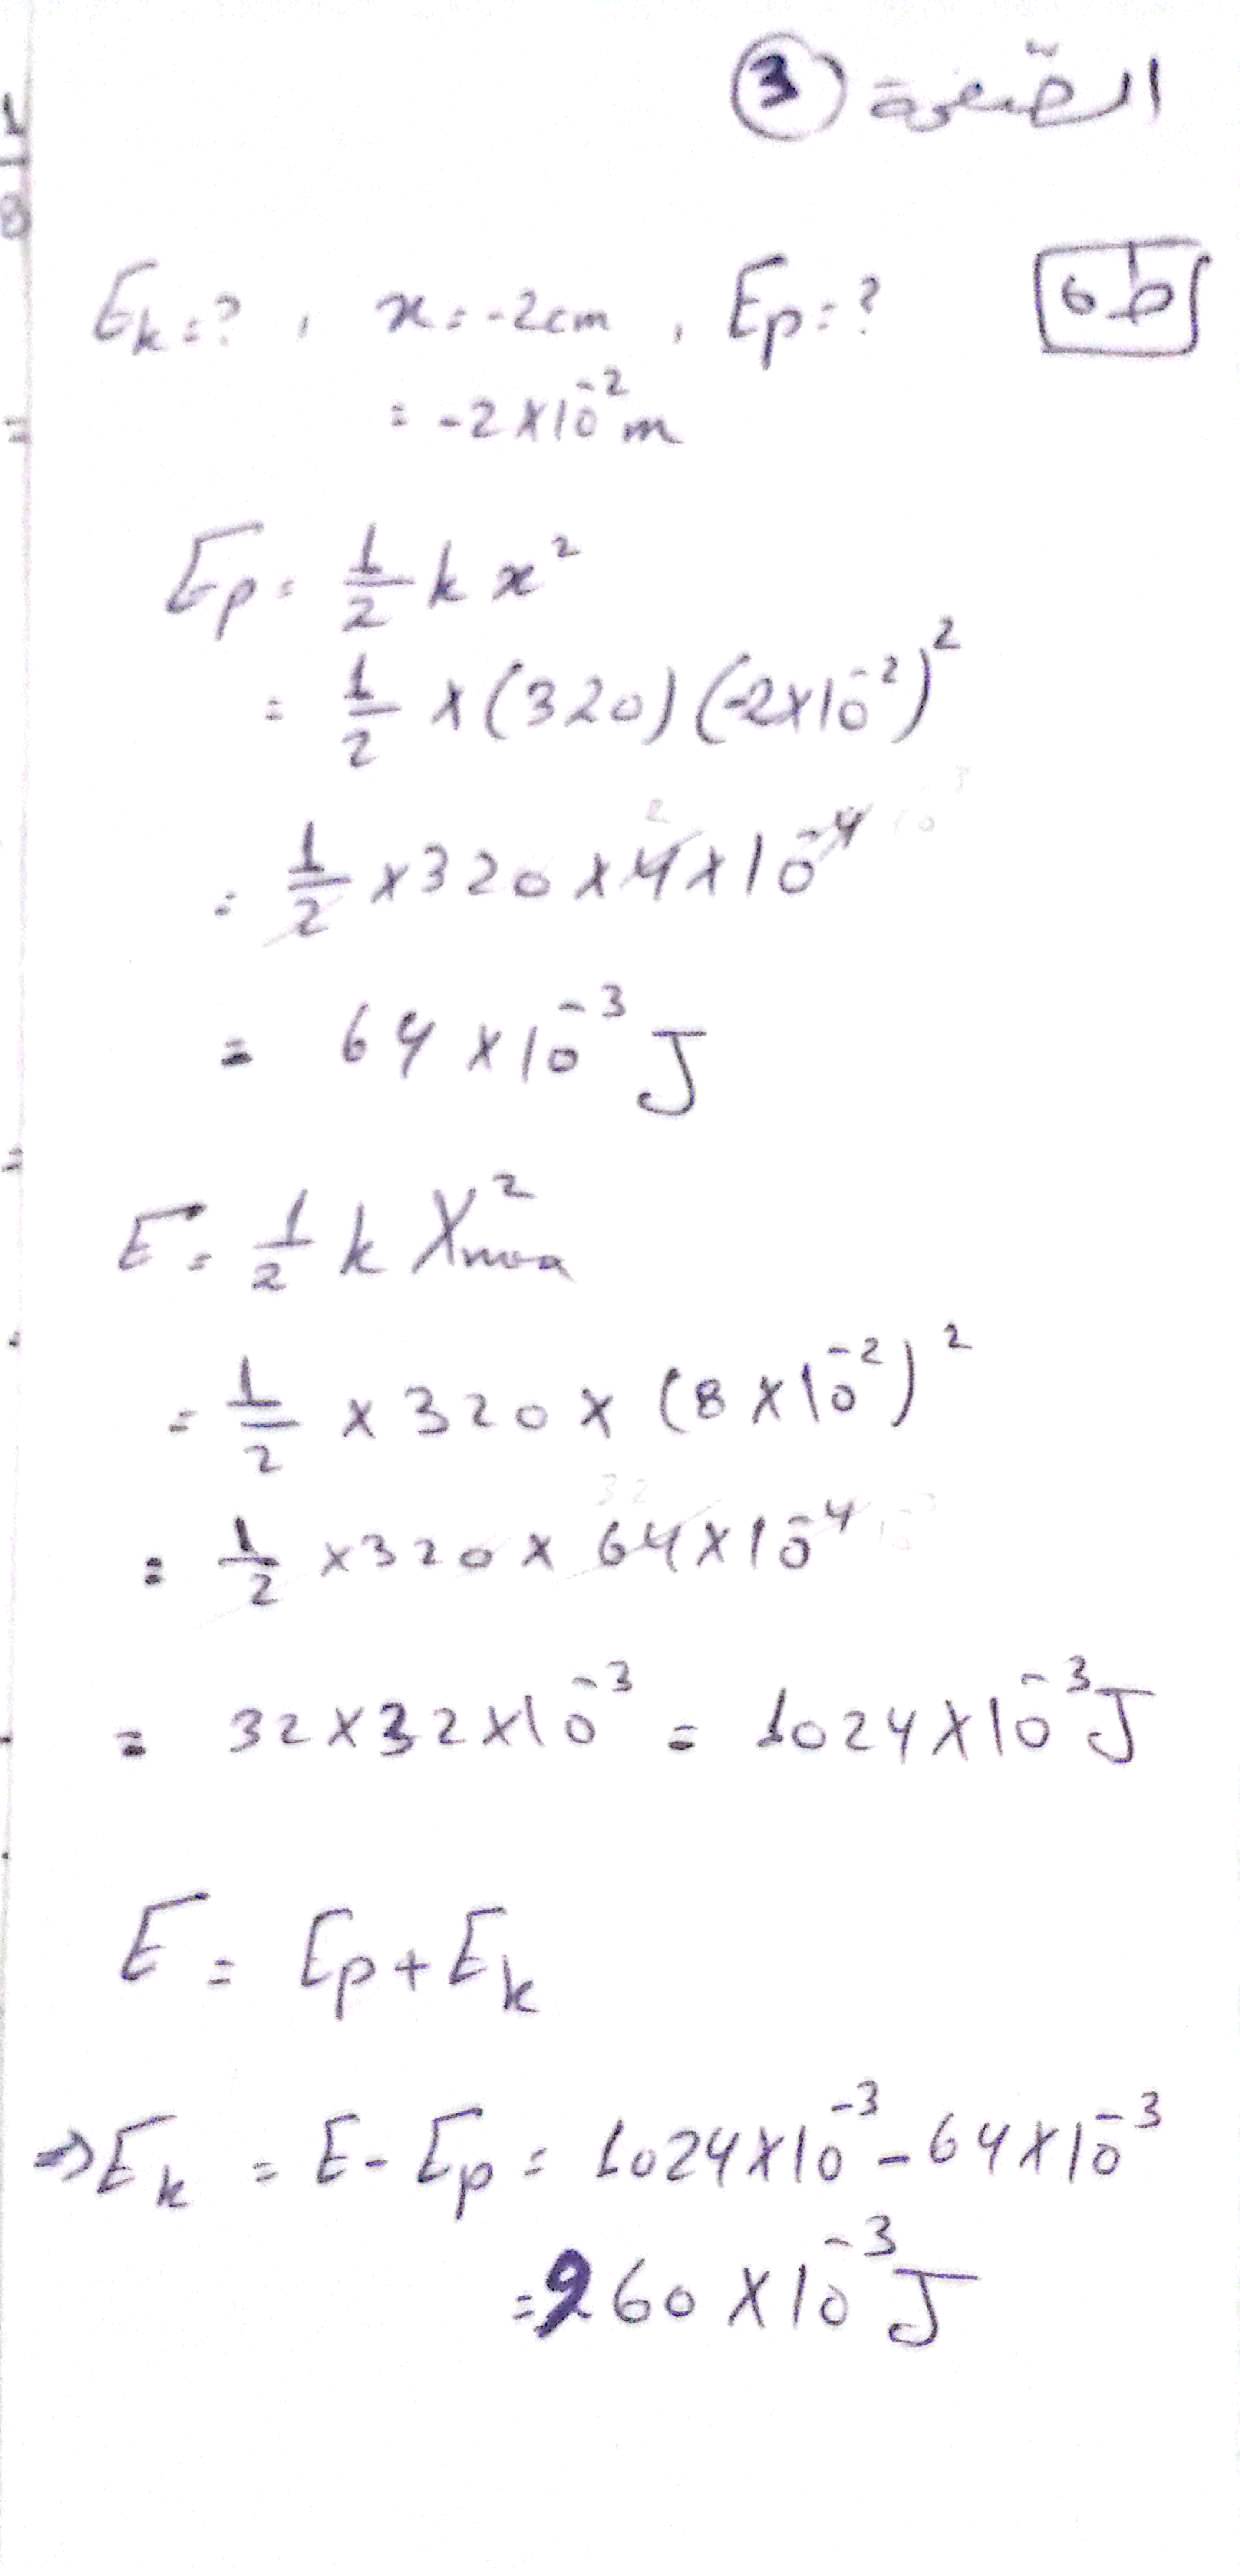 الصفحة 3
ط6 Ek = ? , x = -2cm , Ep = ?
= -2×10⁻² m
Ep = 1/2 k x²
= 1/2 × (320) (-2×10⁻²)²
= 1/2 × 320 × 4 × 10⁻⁴
= 64 × 10⁻³ J
E = 1/2 k X²max
= 1/2 × 320 × (8 × 10⁻²)²
= 1/2 × 320 × 64 × 10⁻⁴
= 32 × 32 × 10⁻³ = 1024 × 10⁻³ J
E = Ep + Ek
⇒ Ek = E - Ep = 1024 × 10⁻³ - 64 × 10⁻³
= 960 × 10⁻³ J